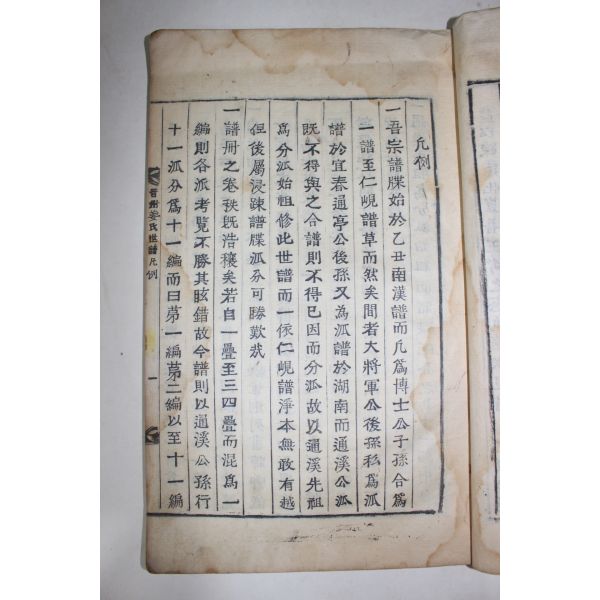 凡例
一吾宗譜牒始於乙丑南漢譜而凡爲博士公子孫合爲
一譜至仁峴譜草而然矣間者大將軍公後孫私爲派
譜於宜春通亭公後孫又為派譜於湖南而通溪公派
既不得與之合譜則不得已因而分派故以通溪先祖
爲分派始祖修此世譜而一依仁峴譜淨本無敢有越
但後屬浸疎譜牒派分可勝歎哉
一譜冊之卷秩既浩穰矣若自一疊至三四疊而混爲一
編則各派考覽不勝其眩錯故今譜則以通溪公孫行
十一派分爲十一編而曰苐一編苐二編以至十一編
晋州姜氏世譜凡例
一